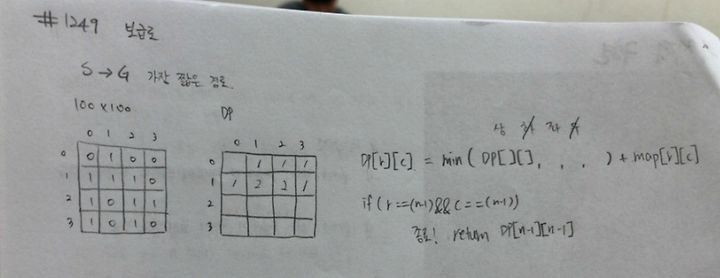 #1249 보급로
S→G 가장 짧은 경로.
100×100 DP
0 1 2 3
0 0 1 0 0
1 1 1 1 0
2 1 0 1 1
3 1 0 1 0
0 1 2 3
0 1 1 1
1 1 2 2 1
2
3
상 하 좌 우
DP[r][c] = min( DP[][], , , ) + map[r][c]
if(r==(n-1)&&c==(n-1))
종료! return DP[n-1][n-1]